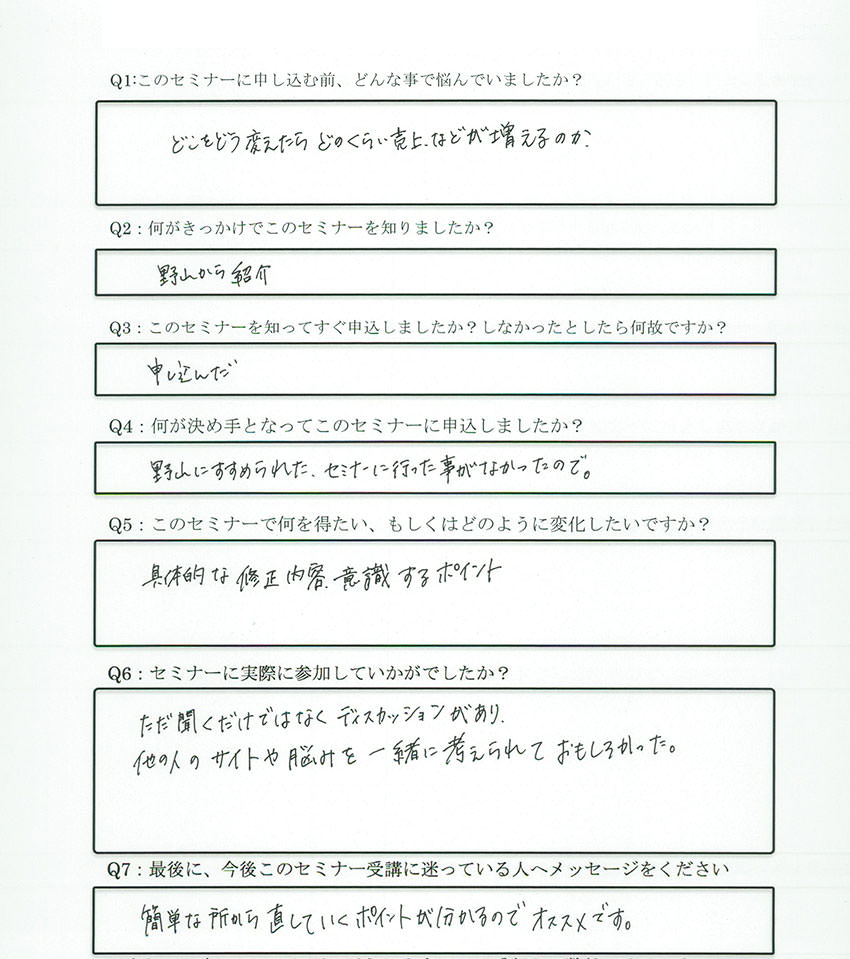 Q1:このセミナーに申し込む前、どんな事で悩んでいましたか？
どこをどう変えたら どのくらい売上、などが増えるのか、
Q2：何がきっかけでこのセミナーを知りましたか？
野山から紹介
Q3：このセミナーを知ってすぐ申込しましたか？しなかったとしたら何故ですか？
申し込んだ
Q4：何が決め手となってこのセミナーに申込しましたか？
野山にすすめられた、セミナーに行った事がなかったので。
Q5：このセミナーで何を得たい、もしくはどのように変化したいですか？
具体的な修正内容、意識するポイント
Q6：セミナーに実際に参加していかがでしたか？
ただ聞くだけではなくディスカッションがあり、
他の人のサイトや脳みを一緒に考えられておもしろかった。
Q7：最後に、今後このセミナー受講に迷っている人へメッセージをください
簡単な所から直していくポイントが分かるのでオススメです。